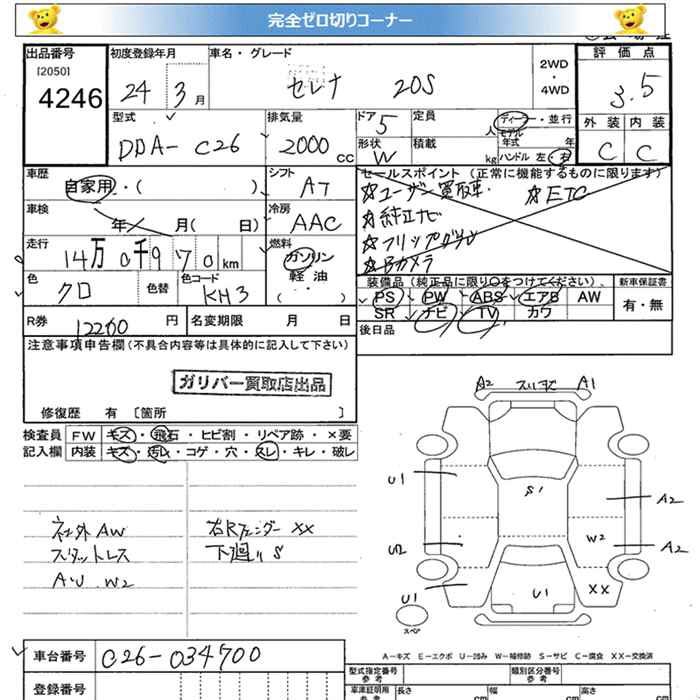 完全ゼロ切りコーナー
出品番号
[2050]
4246
初度登録年月
24 3月
車名・グレード
セレナ 20S
2WD
・
4WD
評価点
3.5
外装 内装
C C
型式
DBA-C26
排気量
2000 cc
ドア 5
形状 W
定員 人
積載 kg
ディーラー・並行
モデル年式 年
ハンドル 左・右
車歴
自家用・( )
シフト
AT
車検
年 月( 日)
冷房
AAC
走行
14万0千970km
燃料
ガソリン
軽・油
( ・ )
色
クロ
色替
色コード
KH3
セールスポイント (正常に機能するものに限ります)
☆ユーザー買取車. ☆ETC
☆純正ナビ
☆フリップダウン
☆Bカメラ
装備品 (純正品に限り〇をつけてください)
PS PW ABS エアB AW
SR ナビ TV カワ
新車保証書
有・無
後日品
R券 12200 円
名変期限 月 日
注意事項申告欄(不具合内容等は具体的に記入して下さい)
ガリバー買取店出品
修復歴 有 [箇所 ]
検査員
記入欄
FW キズ・飛石・ヒビ割・リペア跡・×要
内装 キズ・汚レ・コゲ・穴・スレ・キレ・破レ
社外AW
スタットレス
AU W2
右Rフェンダー XX
下廻り S
A2 スリキズ A1
U1
S1
A2
U2
W2
A2
U1
U1
XX
スペア
A-キズ E-エクボ U-凹み W-補修跡 S-サビ C-腐食 XX-交換済
車台番号 C26-034700
登録番号
型式指定番号
参考
類別区分番号
参考
車庫証明用
参考
長さ cm
幅 cm
高さ cm